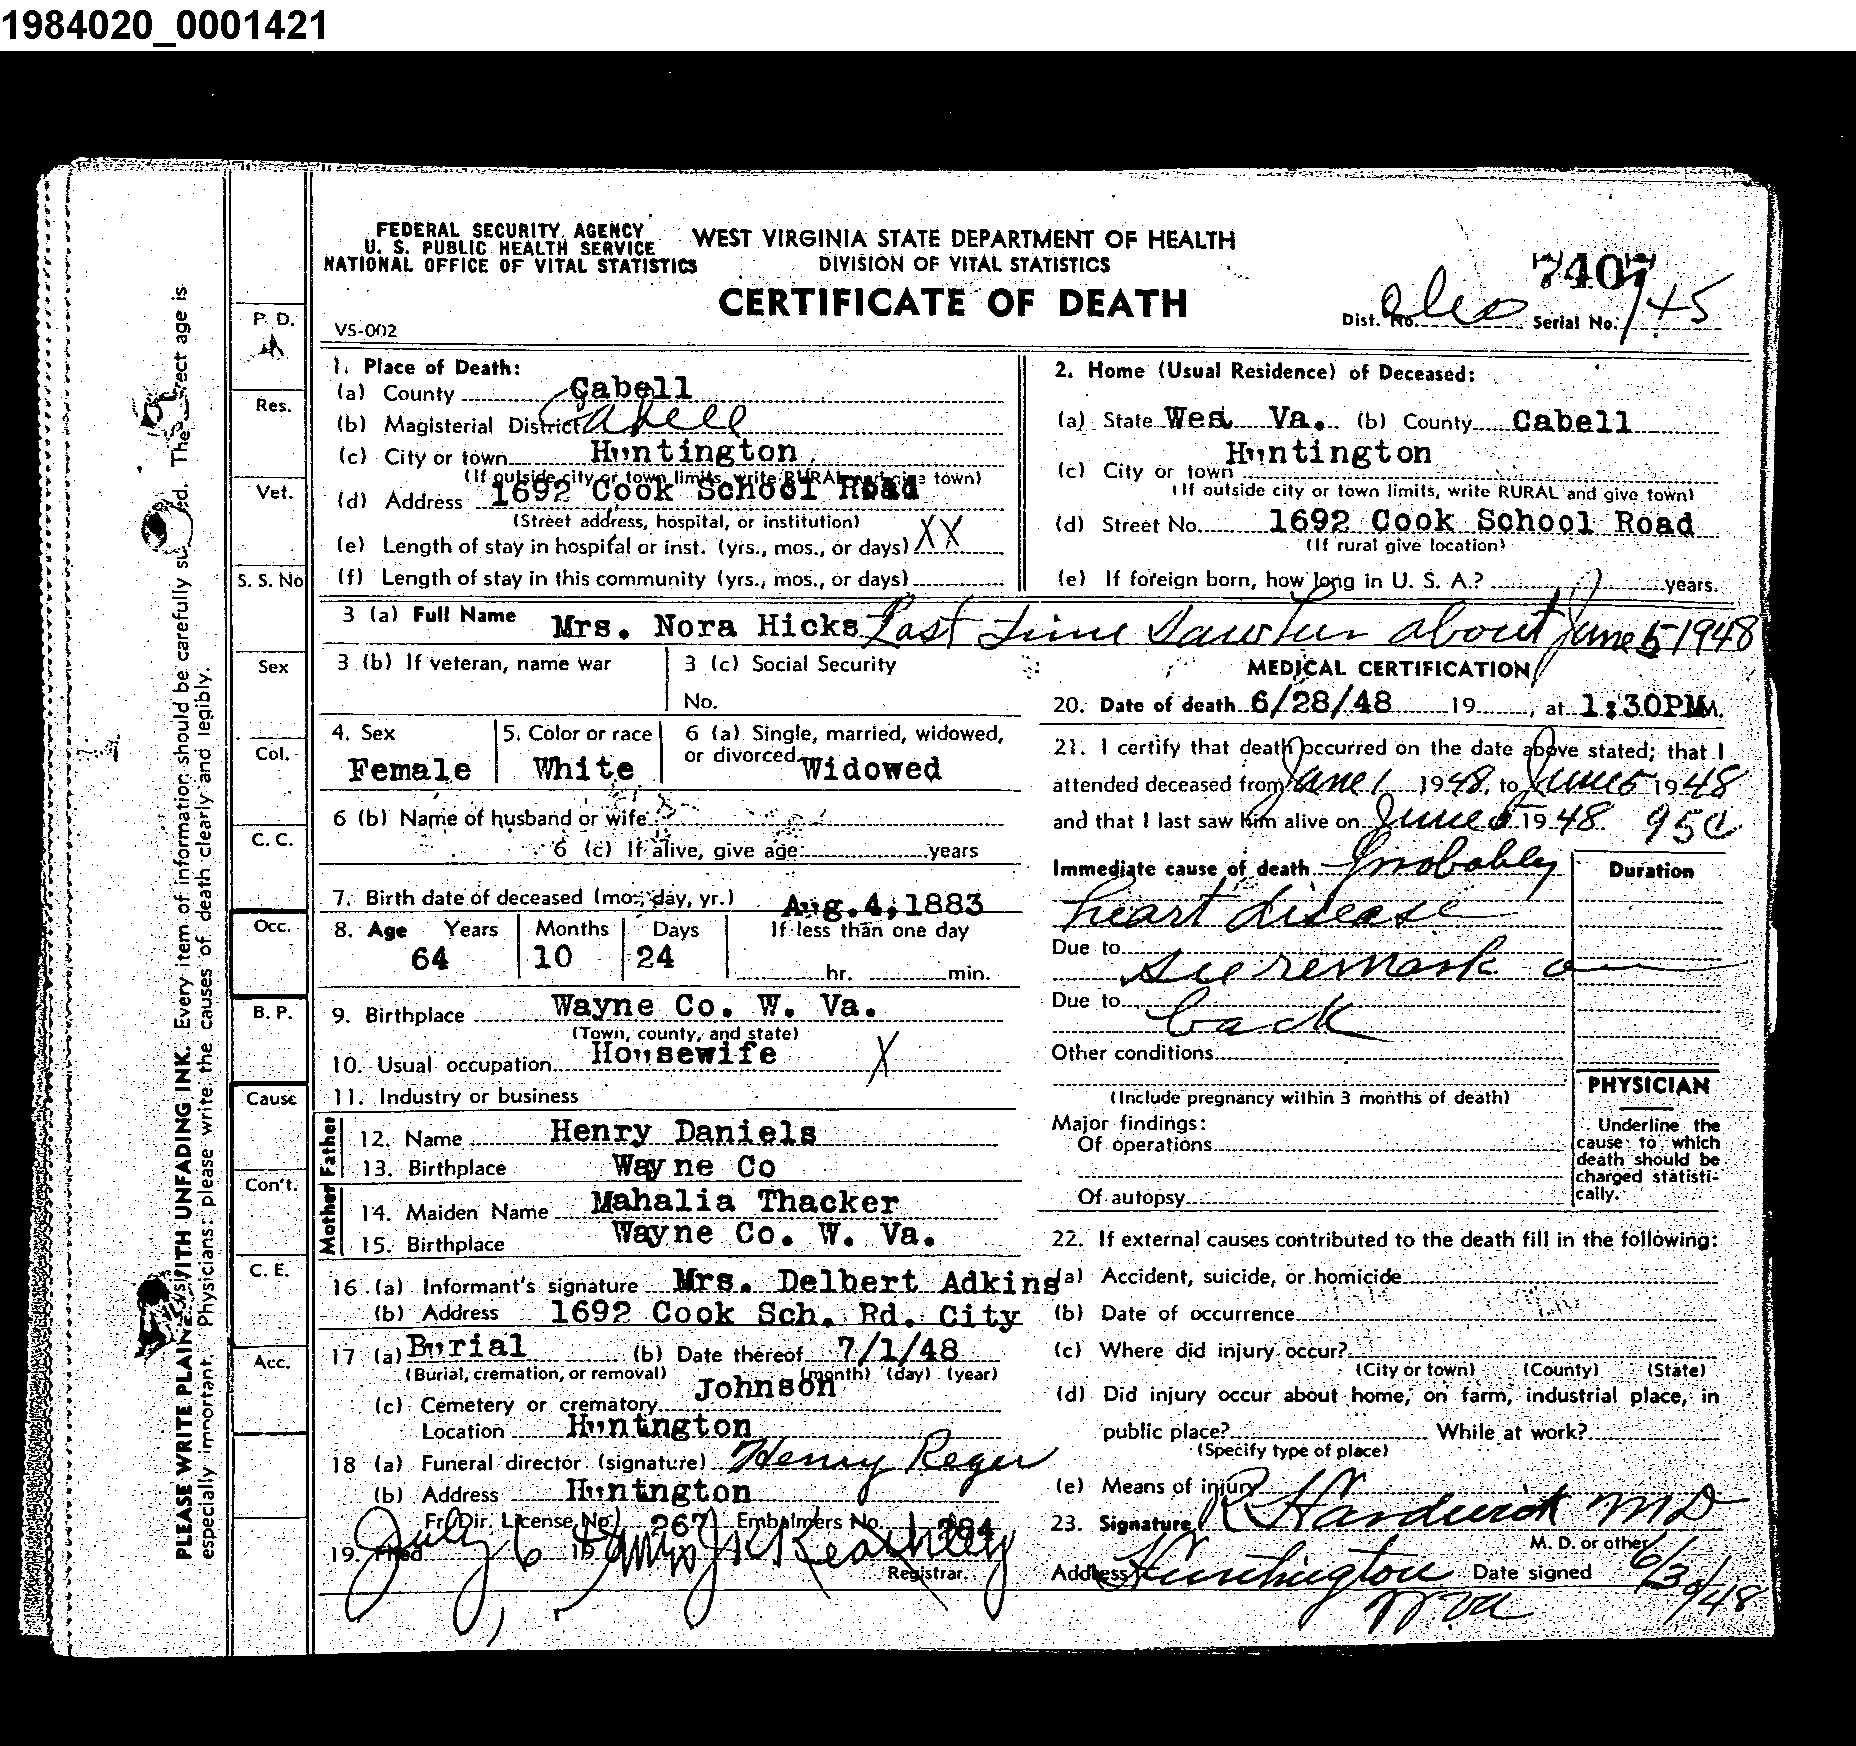 1984020_0001421
FEDERAL SECURITY AGENCY
U. S. PUBLIC HEALTH SERVICE
NATIONAL OFFICE OF VITAL STATISTICS
WEST VIRGINIA STATE DEPARTMENT OF HEALTH
DIVISION OF VITAL STATISTICS
CERTIFICATE OF DEATH
VS-002
7407
Dist. No. Serial No.
1. Place of Death:
(a) County Cabell
(b) Magisterial District
(c) City or town Huntington
(If outside city or town limits, write RURAL and give town)
(d) Address 1692 Cook School Road
(Street address, hospital, or institution)
(e) Length of stay in hospital or inst. (yrs., mos., or days) XX
(f) Length of stay in this community (yrs., mos., or days)
2. Home (Usual Residence) of Deceased:
(a) State Wes. Va. (b) County Cabell
(c) City or town Huntington
(If outside city or town limits, write RURAL and give town)
(d) Street No. 1692 Cook School Road
(If rural give location)
(e) If foreign born, how long in U. S. A.? years.
3 (a) Full Name Mrs. Nora Hicks Last time saw her about June 5 1948
3 (b) If veteran, name war
3 (c) Social Security
No.
4. Sex Female
5. Color or race White
6 (a) Single, married, widowed,
or divorced Widowed
6 (b) Name of husband or wife
6 (c) If alive, give age years
7. Birth date of deceased (mo., day, yr.) Aug. 4, 1883
8. Age Years Months Days If less than one day
64 10 24 hr. min.
9. Birthplace Wayne Co. W. Va.
(Town, county, and state)
10. Usual occupation Housewife X
11. Industry or business
Father
12. Name Henry Daniels
13. Birthplace Wayne Co
Mother
14. Maiden Name Mahalia Thacker
15. Birthplace Wayne Co. W. Va.
16. (a) Informant's signature Mrs. Delbert Adkins
(b) Address 1692 Cook Sch. Rd. City
17 (a) Burial (b) Date thereof 7/1/48
(Burial, cremation, or removal) (month) (day) (year)
(c) Cemetery or crematory Johnson
Location Huntington
18 (a) Funeral director (signature) Henry Reger
(b) Address Huntington
Fr. Dir. License No. 267 Embalmers No.
19. Filed July 6
Registrar.
MEDICAL CERTIFICATION
20. Date of death 6/28/48 19 , at 1:30PM M.
21. I certify that death occurred on the date above stated; that I
attended deceased from June 1 1948, to June 5 1948
and that I last saw him alive on June 5 1948 95c
Immediate cause of death Probably
heart disease
Due to see remark on
Due to back
Other conditions
(Include pregnancy within 3 months of death)
Major findings:
Of operations
Of autopsy
Duration
PHYSICIAN
Underline the
cause to which
death should be
charged statisti-
cally.
22. If external causes contributed to the death fill in the following:
(a) Accident, suicide, or homicide
(b) Date of occurrence
(c) Where did injury occur?
(City or town) (County) (State)
(d) Did injury occur about home, on farm, industrial place, in
public place? While at work?
(Specify type of place)
(e) Means of injury
23. Signature R Hardwick MD
M. D. or other
Address Huntington Date signed 6/30/48
W Va
P. D.
Res.
Vet.
S. S. No
Sex
Col.
C. C.
Occ.
B. P.
Cause
Con't.
C. E.
Acc.
PLEASE WRITE PLAINLY WITH UNFADING INK. Every item of information should be carefully The age is
especially important. Physicians: please write the causes of death clearly and legibly.